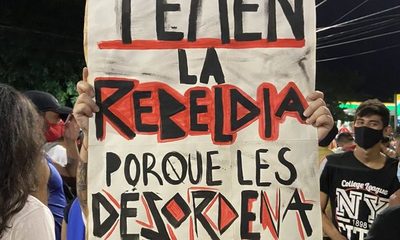 TEMEN
LA
REBELDIA
PORQUE LES
DESORDENA
College League
NY
1898